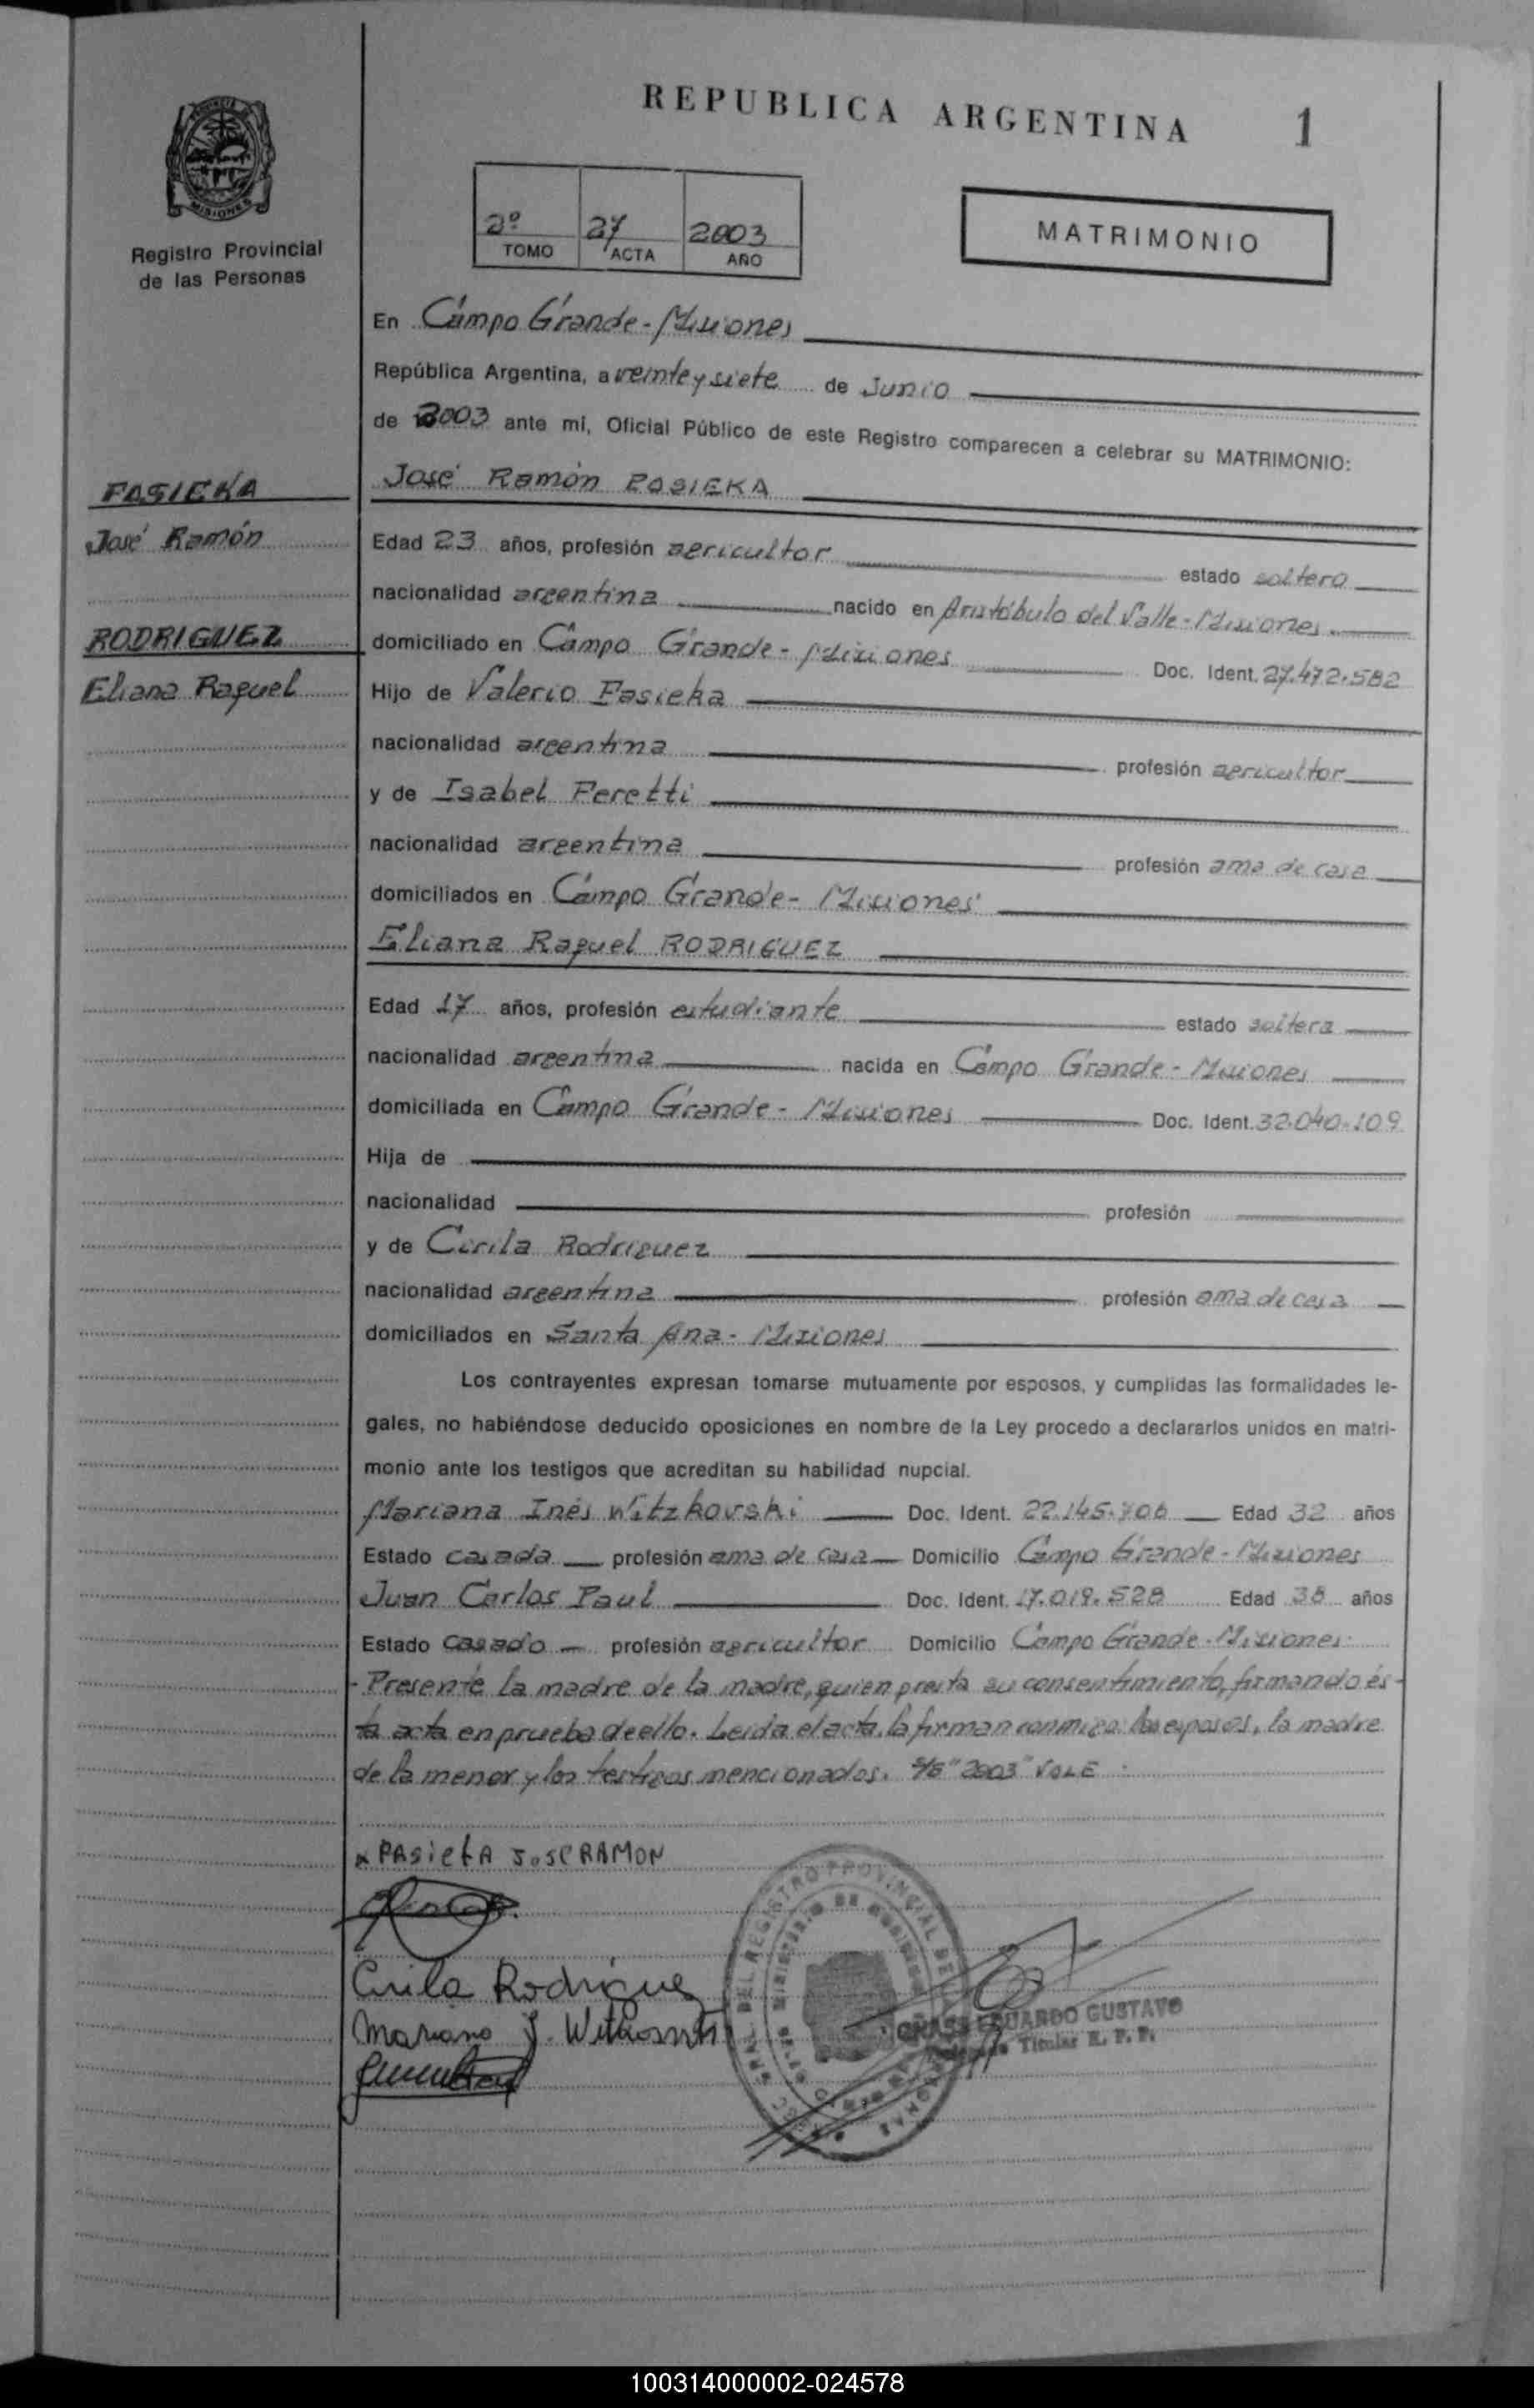 REPUBLICA ARGENTINA 1
MISIONES
Registro Provincial
de las Personas
2º 27 2003
TOMO ACTA AÑO
MATRIMONIO
En Campo Grande - Misiones
República Argentina, a veinte y siete de Junio
de 2003 ante mí, Oficial Público de este Registro comparecen a celebrar su MATRIMONIO:
PASIEKA
José Ramón PASIEKA
José Ramón
Edad 23 años, profesión agricultor estado soltero
nacionalidad argentina nacido en Aristóbulo del Valle - Misiones.
RODRIGUEZ
domiciliado en Campo Grande - Misiones Doc. Ident. 27.472.582
Eliana Raquel
Hijo de Valerio Pasieka
nacionalidad argentina profesión agricultor
y de Isabel Peretti
nacionalidad argentina profesión ama de casa
domiciliados en Campo Grande - Misiones
Eliana Raquel RODRIGUEZ
Edad 17 años, profesión estudiante estado soltera
nacionalidad argentina nacida en Campo Grande - Misiones
domiciliada en Campo Grande - Misiones Doc. Ident. 32.040.109
Hija de
nacionalidad profesión
y de Cirila Rodriguez
nacionalidad argentina profesión ama de casa
domiciliados en Santa Ana - Misiones
Los contrayentes expresan tomarse mutuamente por esposos, y cumplidas las formalidades le-
gales, no habiéndose deducido oposiciones en nombre de la Ley procedo a declararlos unidos en matri-
monio ante los testigos que acreditan su habilidad nupcial.
Mariana Inés Witzkovski Doc. Ident. 22.145.706 Edad 32 años
Estado casada profesión ama de casa Domicilio Campo Grande - Misiones
Juan Carlos Paul Doc. Ident. 17.019.528 Edad 38 años
Estado casado profesión agricultor Domicilio Campo Grande - Misiones
- Presente la madre de la madre, quien presta su consentimiento, firmando és-
ta acta en prueba de ello. Leída el acta, la firman conmigo los esposos, la madre
de la menor y los testigos mencionados. S/E "2003" VALE
x PASieKA JoSE RAMON
Cirila Rodriguez
EDUARDO GUSTAVO
Titular R. P. P.
100314000002-024578